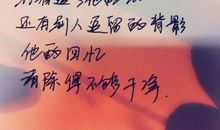 还有别人逗留的背影
他的回忆
清除得不够干净